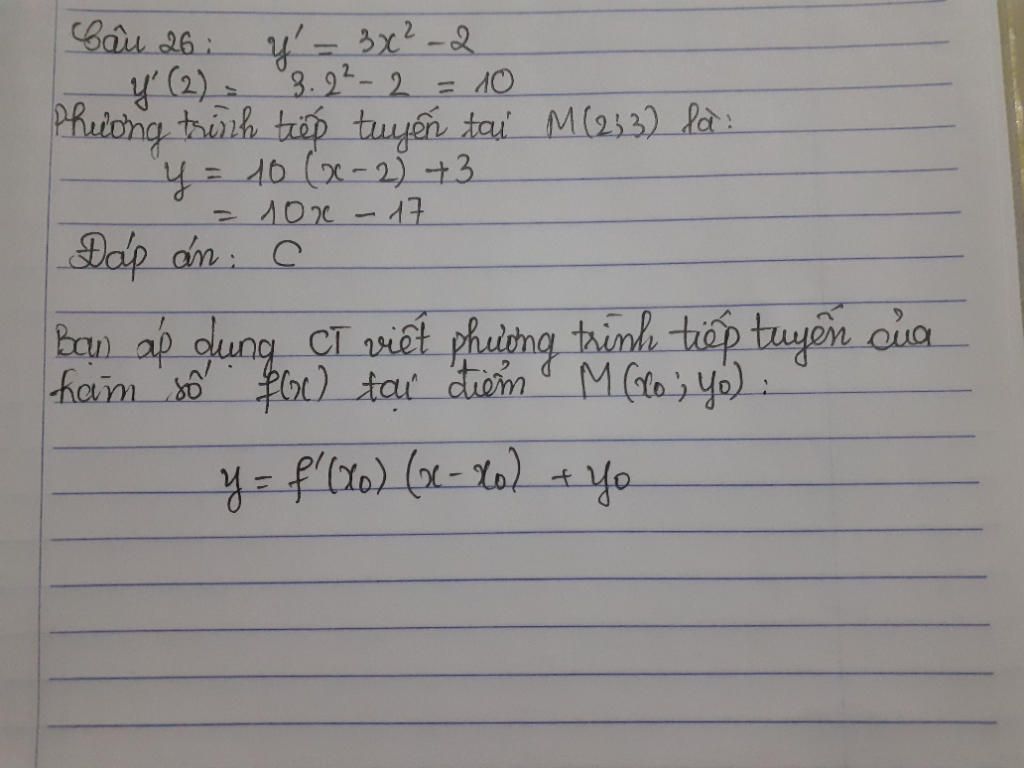 Câu 26: y' = 3x² - 2
y'(2) = 3.2² - 2 = 10
Phương trình tiếp tuyến tại M(2;3) là:
y = 10 (x - 2) + 3
= 10x - 17
Đáp án: C
Bạn áp dụng CT viết phương trình tiếp tuyến của
hàm số f(x) tại điểm M(x₀; y₀):
y = f'(x₀) (x - x₀) + y₀